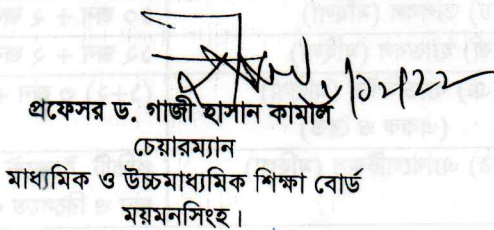 প্রফেসর ড. গাজী হাসান কামাল
চেয়ারম্যান
মাধ্যমিক ও উচ্চমাধ্যমিক শিক্ষা বোর্ড
ময়মনসিংহ।